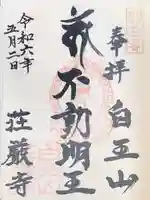 奉拝
白玉山
不動明王
令和六年
五月二日
荘厳寺